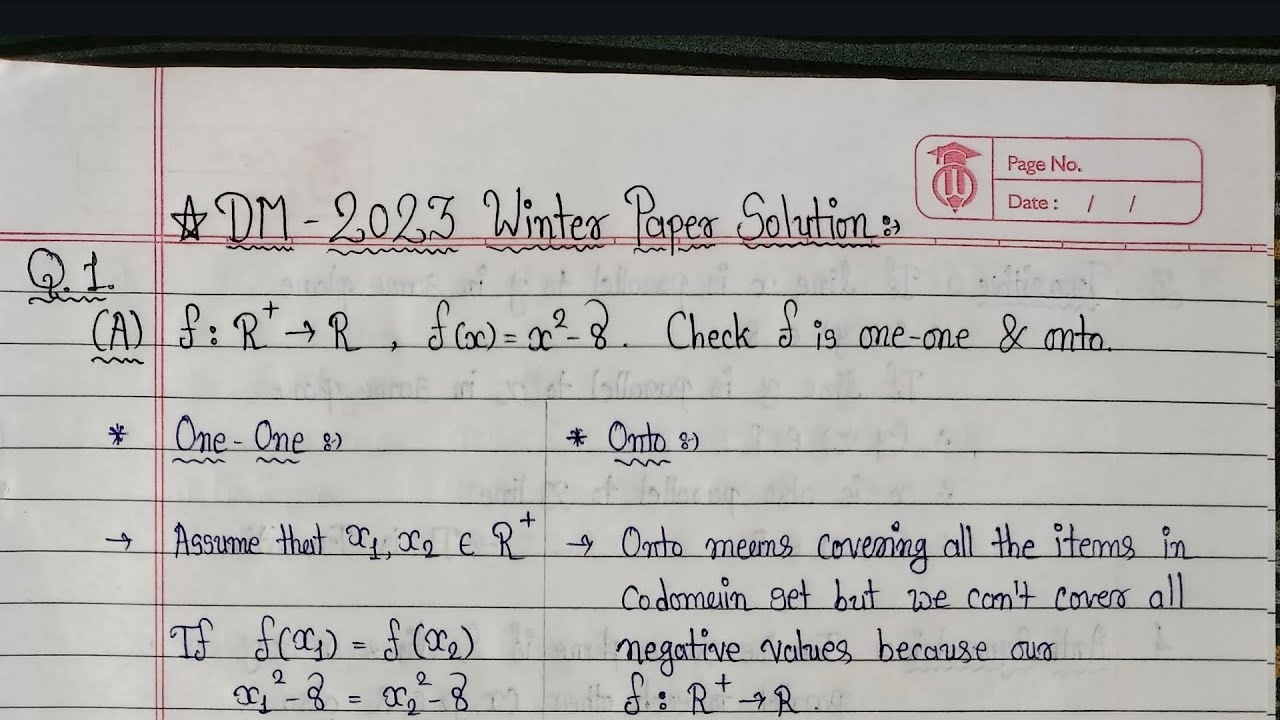 Page No.
Date : / /
☆ DM - 2023 Winter Paper Solution :→
Q.1.
(A) f : R⁺ → R , f(x) = x² - 8 . Check f is one-one & onto.
* One - One :→
→ Assume that x₁, x₂ ∈ R⁺
If f(x₁) = f(x₂)
x₁² - 8 = x₂² - 8
* Onto :→
→ Onto meems covering all the items in
Codomein set but we can't cover all
negative values because our
f : R⁺ → R .